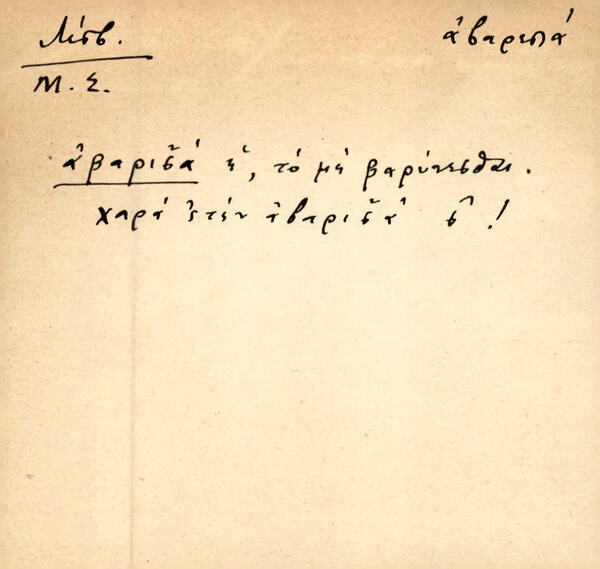 Λέσβ.
ἀβαρεσιά
Μ. Σ.
ἀβαρισ̌ά ἡ, τὸ μὴ βαρύνεσθαι.
χαρά 'ς τὴν ἀβαρισ̌ά σ'!